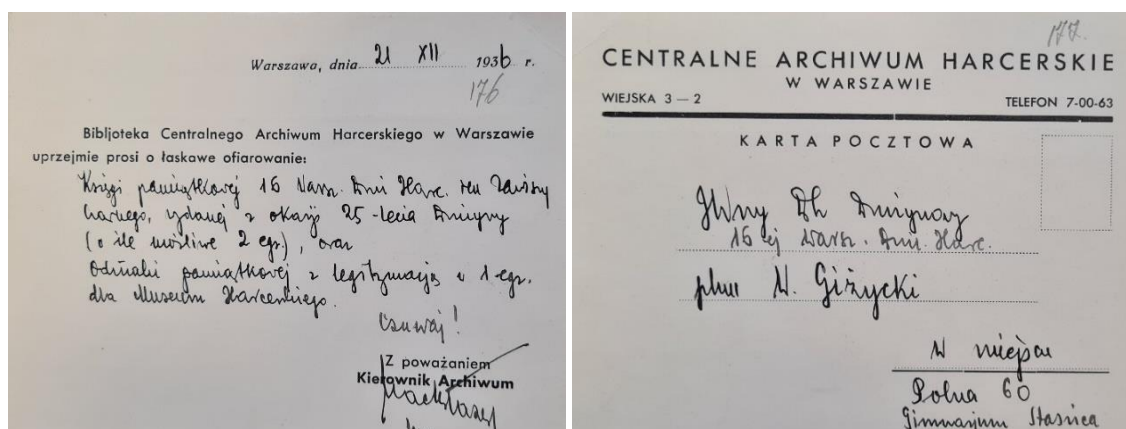 Warszawa, dnia 21 XII 1936 r.
176
Bibljoteka Centralnego Archiwum Harcerskiego w Warszawie
uprzejmie prosi o łaskawe ofiarowanie:
Księgi pamiątkowej 16 Warsz. Druż. Harc. im. Zawiszy
Czarnego, wydanej z okazji 25-lecia Drużyny
(o ile możliwe 2 egz.), oraz
Odznaki pamiątkowej z legitymacją w 1-egz.
dla Museum Harcerskiego.
Czuwaj!
Z poważaniem
Kierownik Archiwum
177.
CENTRALNE ARCHIWUM HARCERSKIE
W WARSZAWIE
WIEJSKA 3 — 2
TELEFON 7-00-63
KARTA POCZTOWA
JWny Dh Drużynowy
16 ej Warsz. Druż. Harc.
phm W. Giżycki
W miejscu
Polna 60
Gimnazjum Staszica